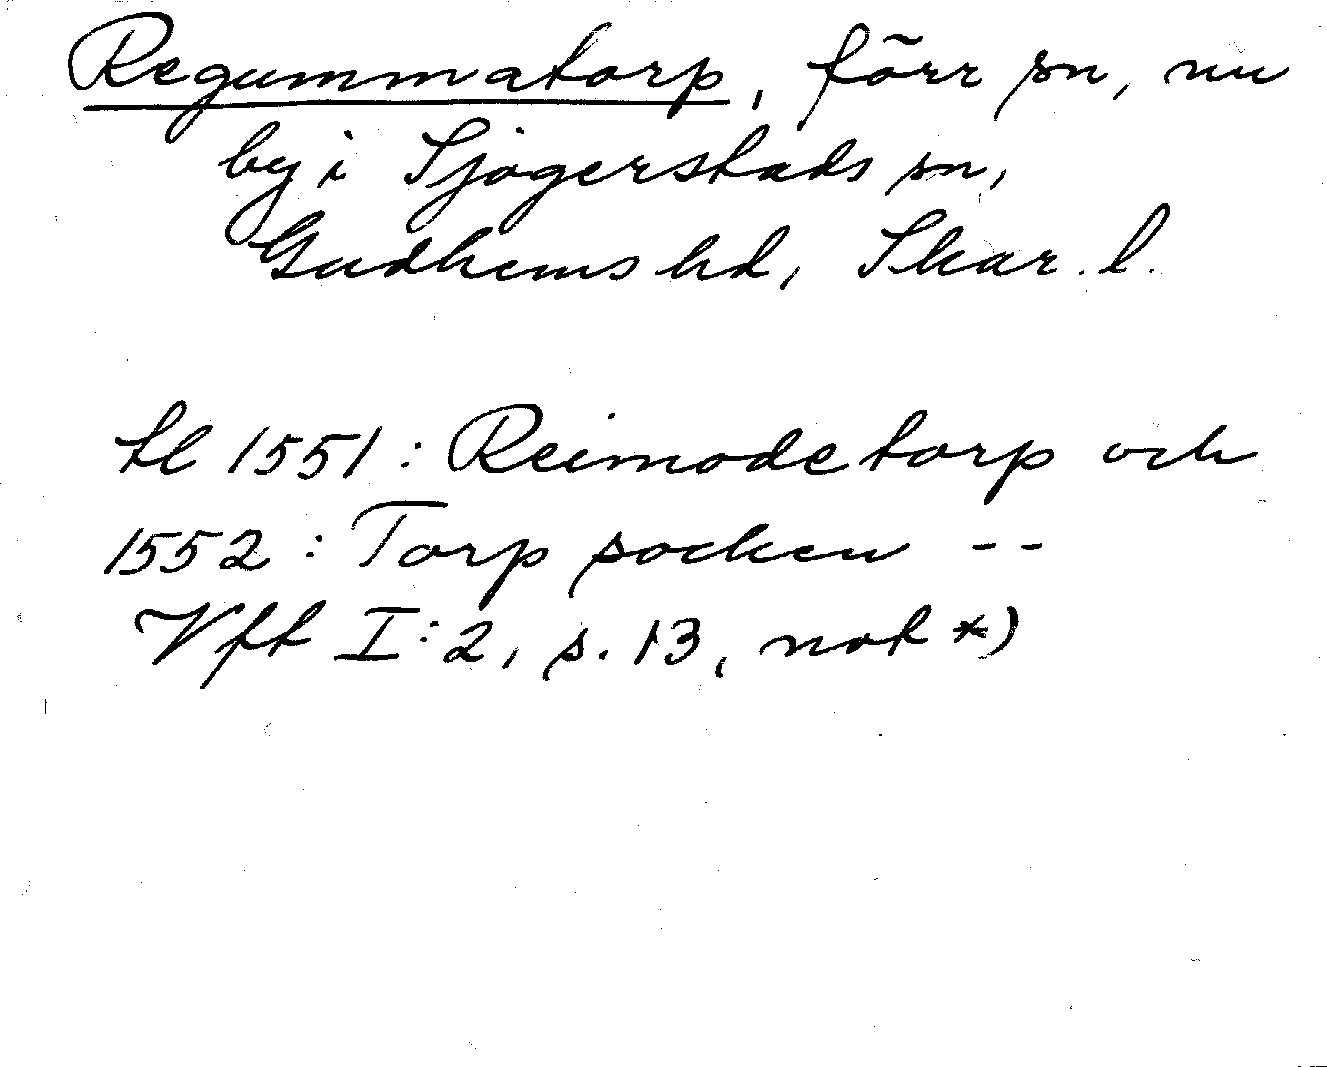 Regummatorp, förr sn, nu
by i Sjogerstads sn,
Gudhems hd, Skar. l.
tl 1551: Reimodetorp och
1552: Torp socken --
Vft I:2, s. 13, not *)